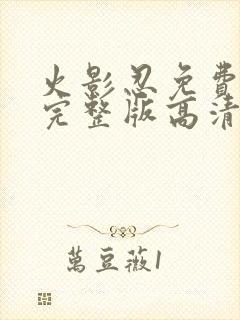 火影忍免費
完整版高清
萬豆薇1